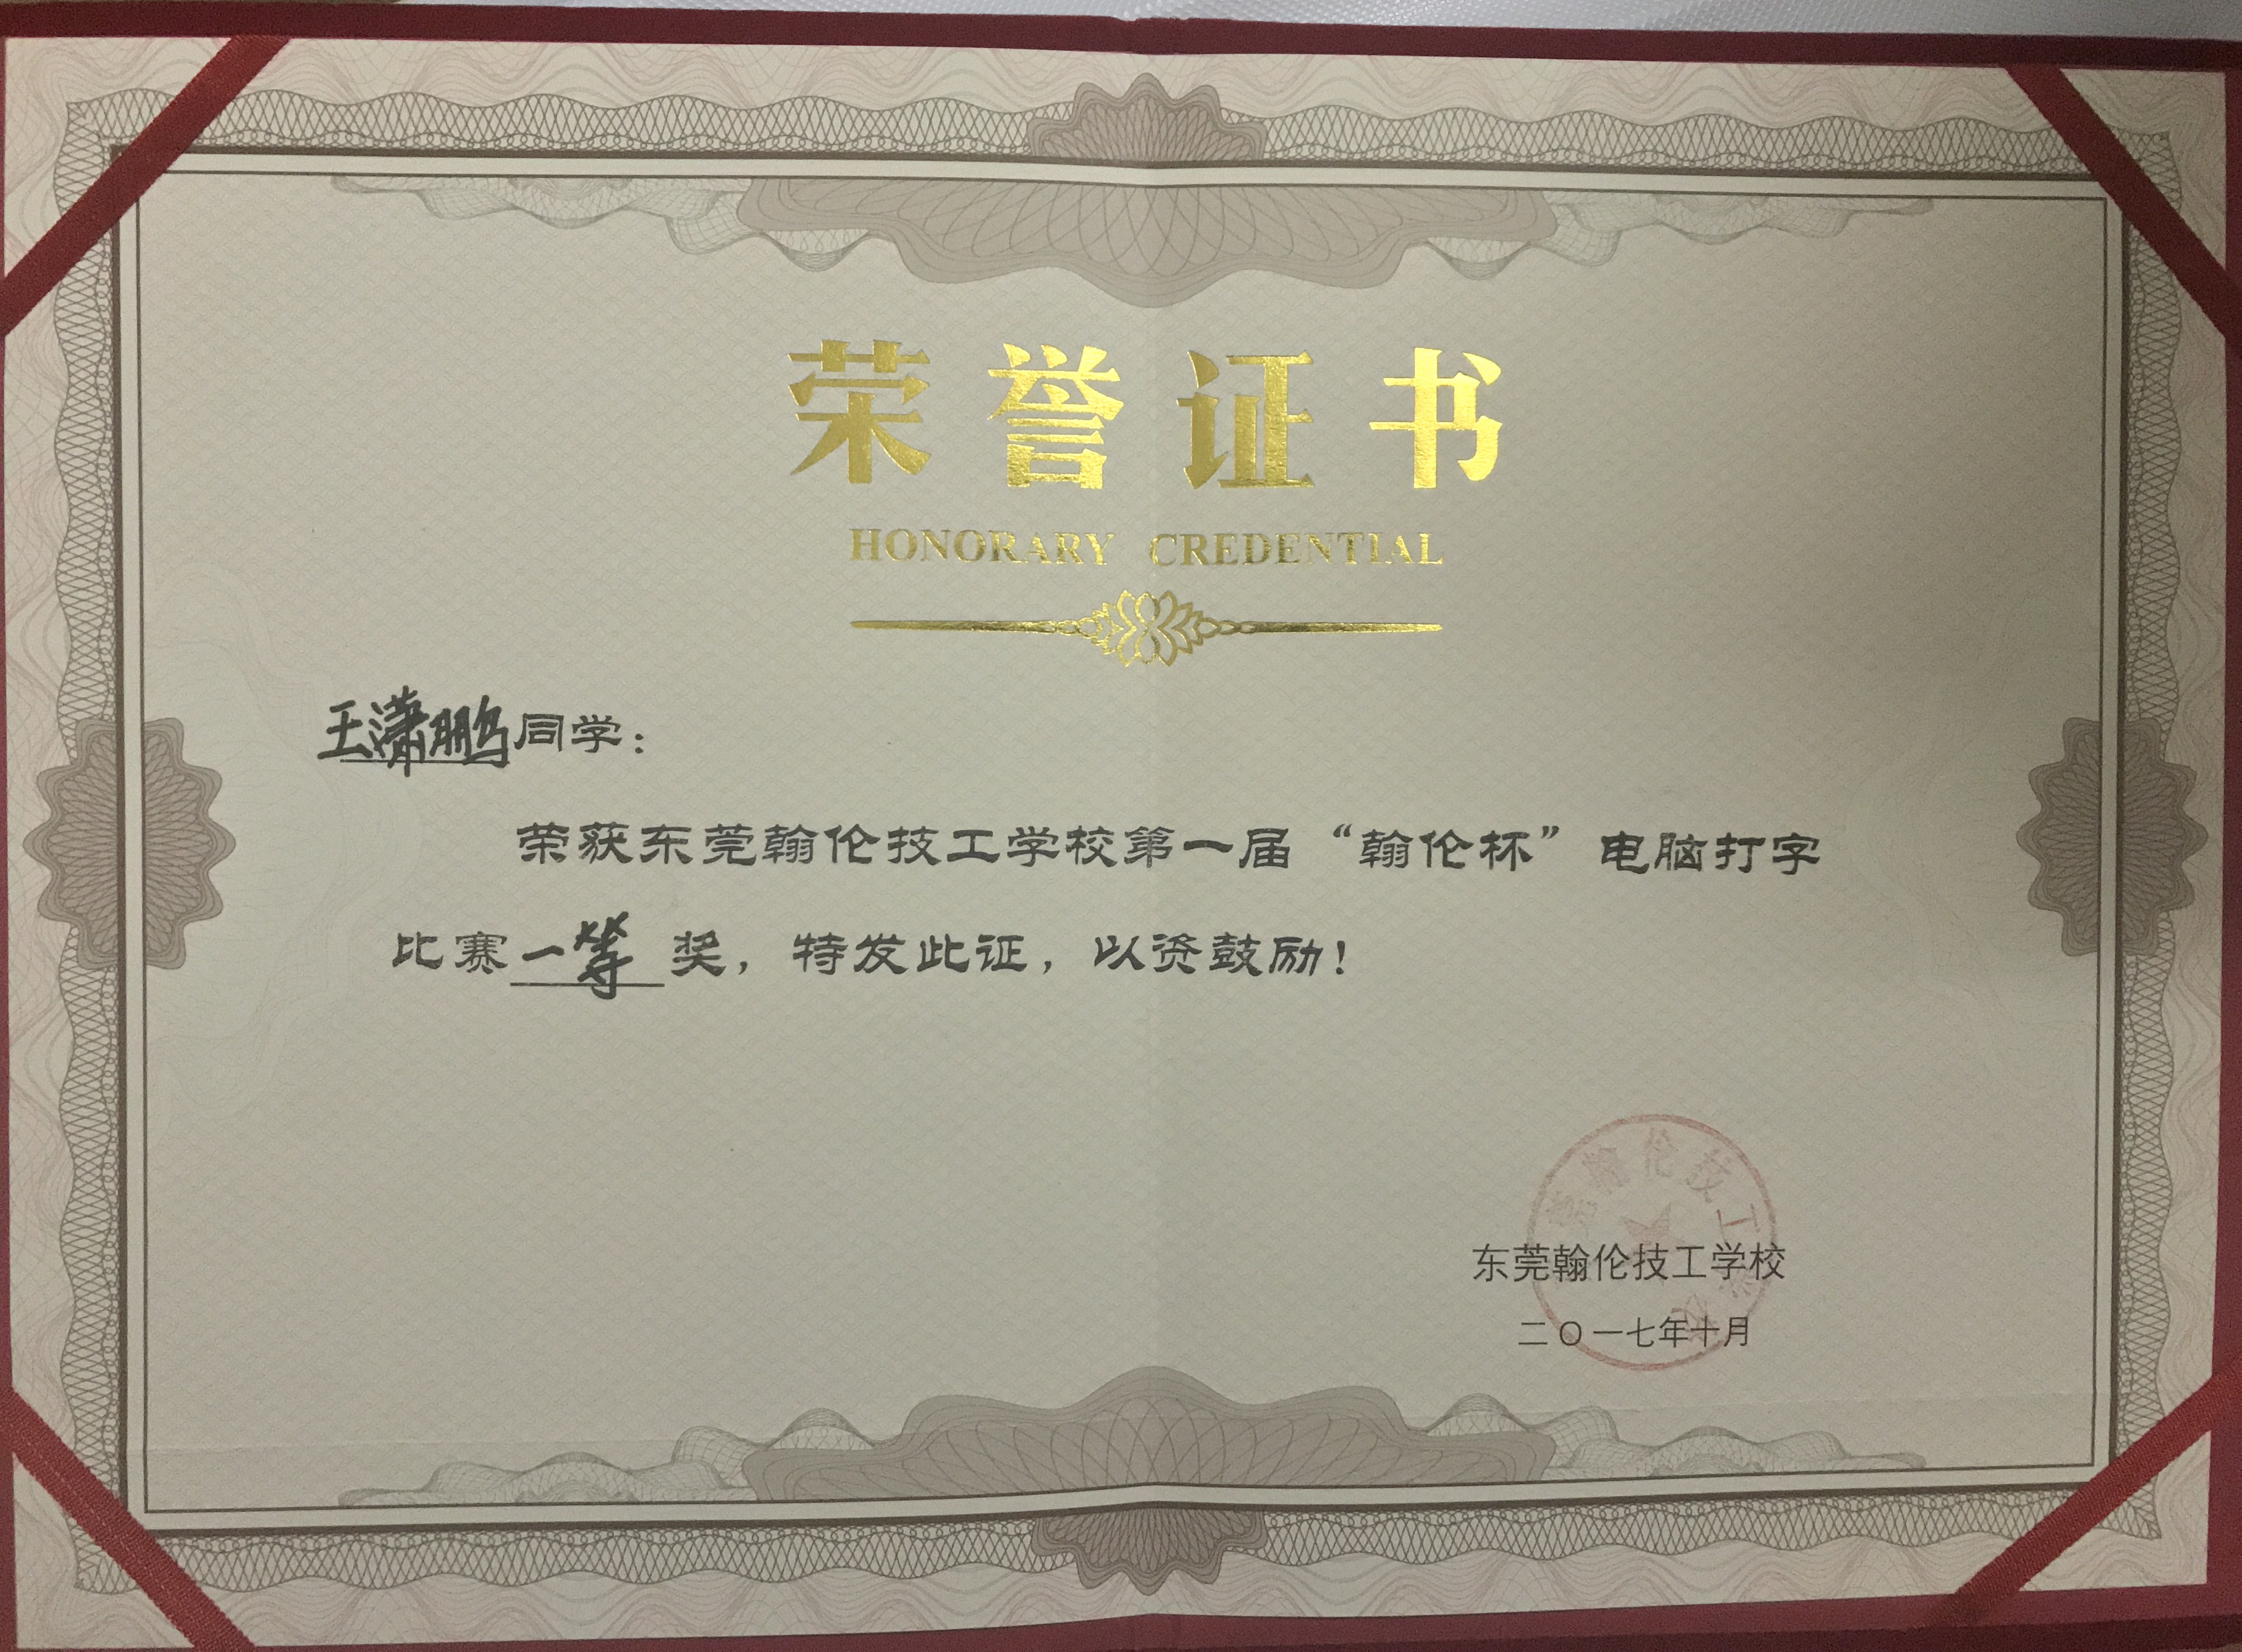 荣誉证书
HONORARY CREDENTIAL
王潇鹏同学：
荣获东莞翰伦技工学校第一届“翰伦杯”电脑打字
比赛一等奖，特发此证，以资鼓励！
东莞翰伦技工学校
二〇一七年十月